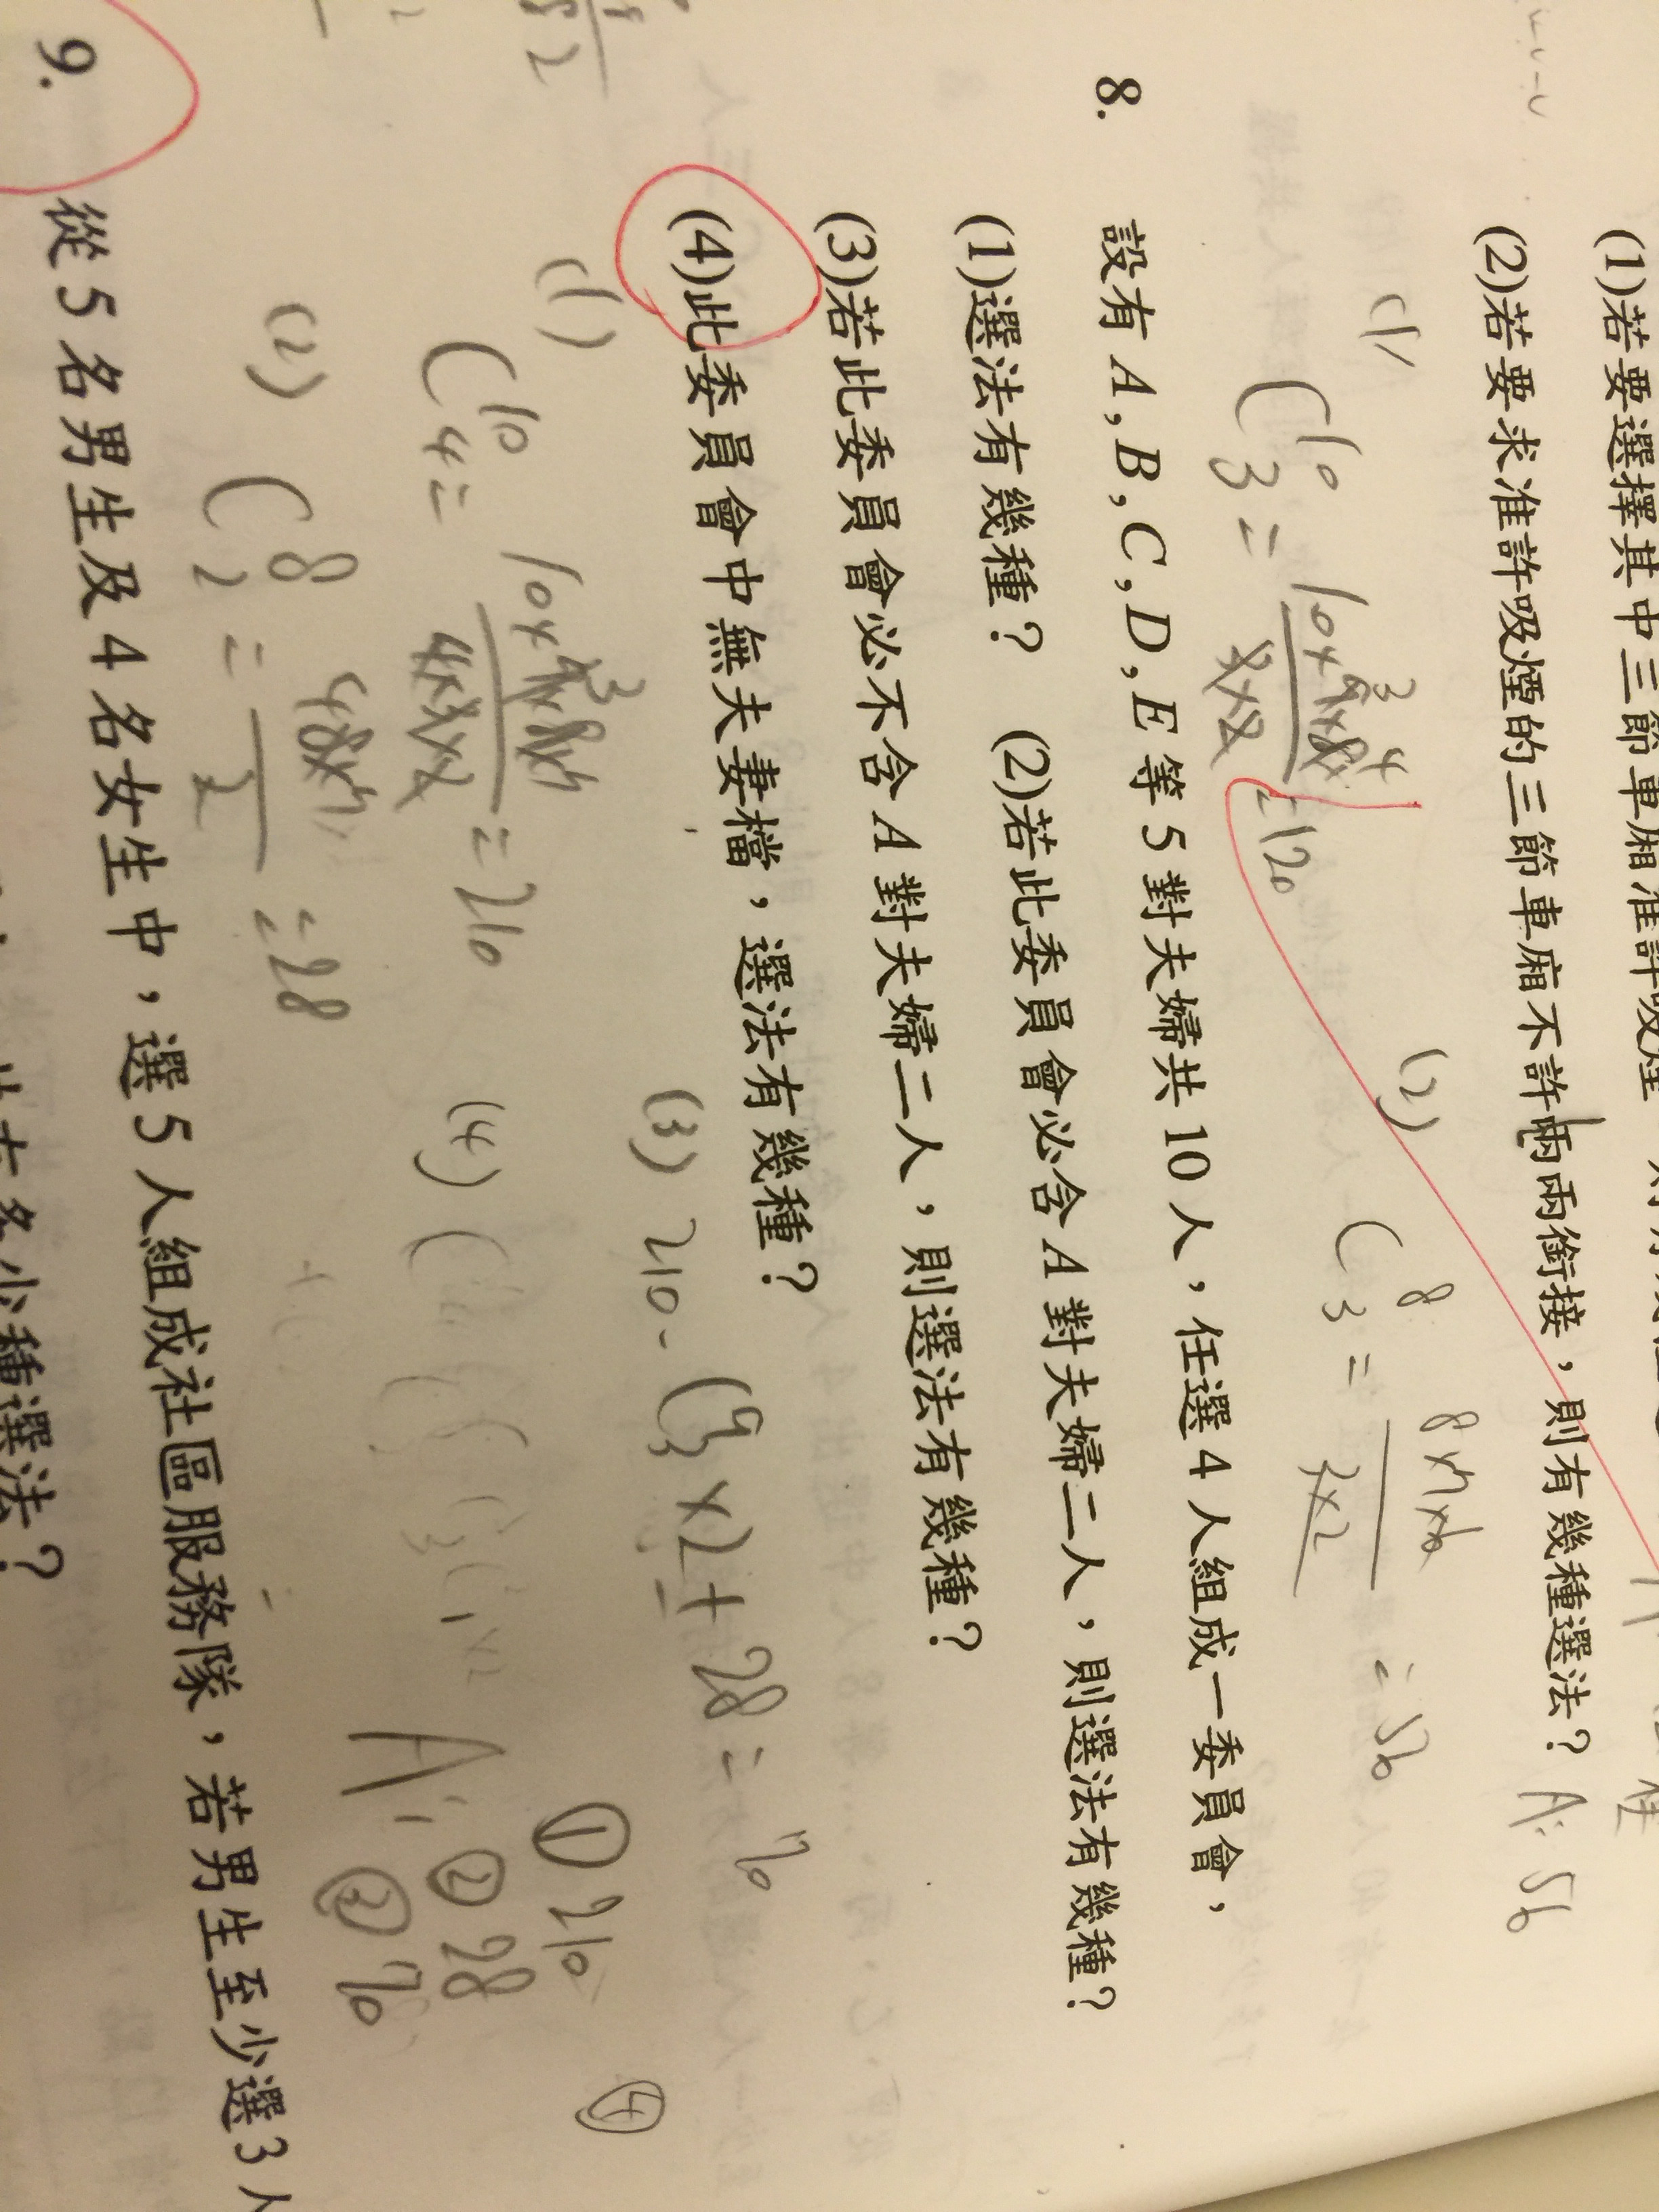 (1)若要選擇其中三節車廂准許吸煙
(2)若要求准許吸煙的三節車廂不許兩兩銜接，則有幾種選法？ A: 56
(1) C 10 3 = 10×9×8 / 3×2 = 120
(2) C 8 3 = 8×7×6 / 3×2 = 56
8. 設有 A , B , C , D , E 等 5 對夫婦共 10 人，任選 4 人組成一委員會，
(1)選法有幾種？ (2)若此委員會必含 A 對夫婦二人，則選法有幾種？
(3)若此委員會必不含 A 對夫婦二人，則選法有幾種？
(4)此委員會中無夫妻檔，選法有幾種？
(1) C 10 4 = 10×9×8×7 / 4×3×2 = 210
(2) C 8 2 = 8×7 / 2 = 28
(3) 210 - C 9 3 × 2 + 28 = 70
(4)
A: ① 210
② 28
③ 70
④
9. 從 5 名男生及 4 名女生中，選 5 人組成社區服務隊，若男生至少選 3 人
共有多少種選法？